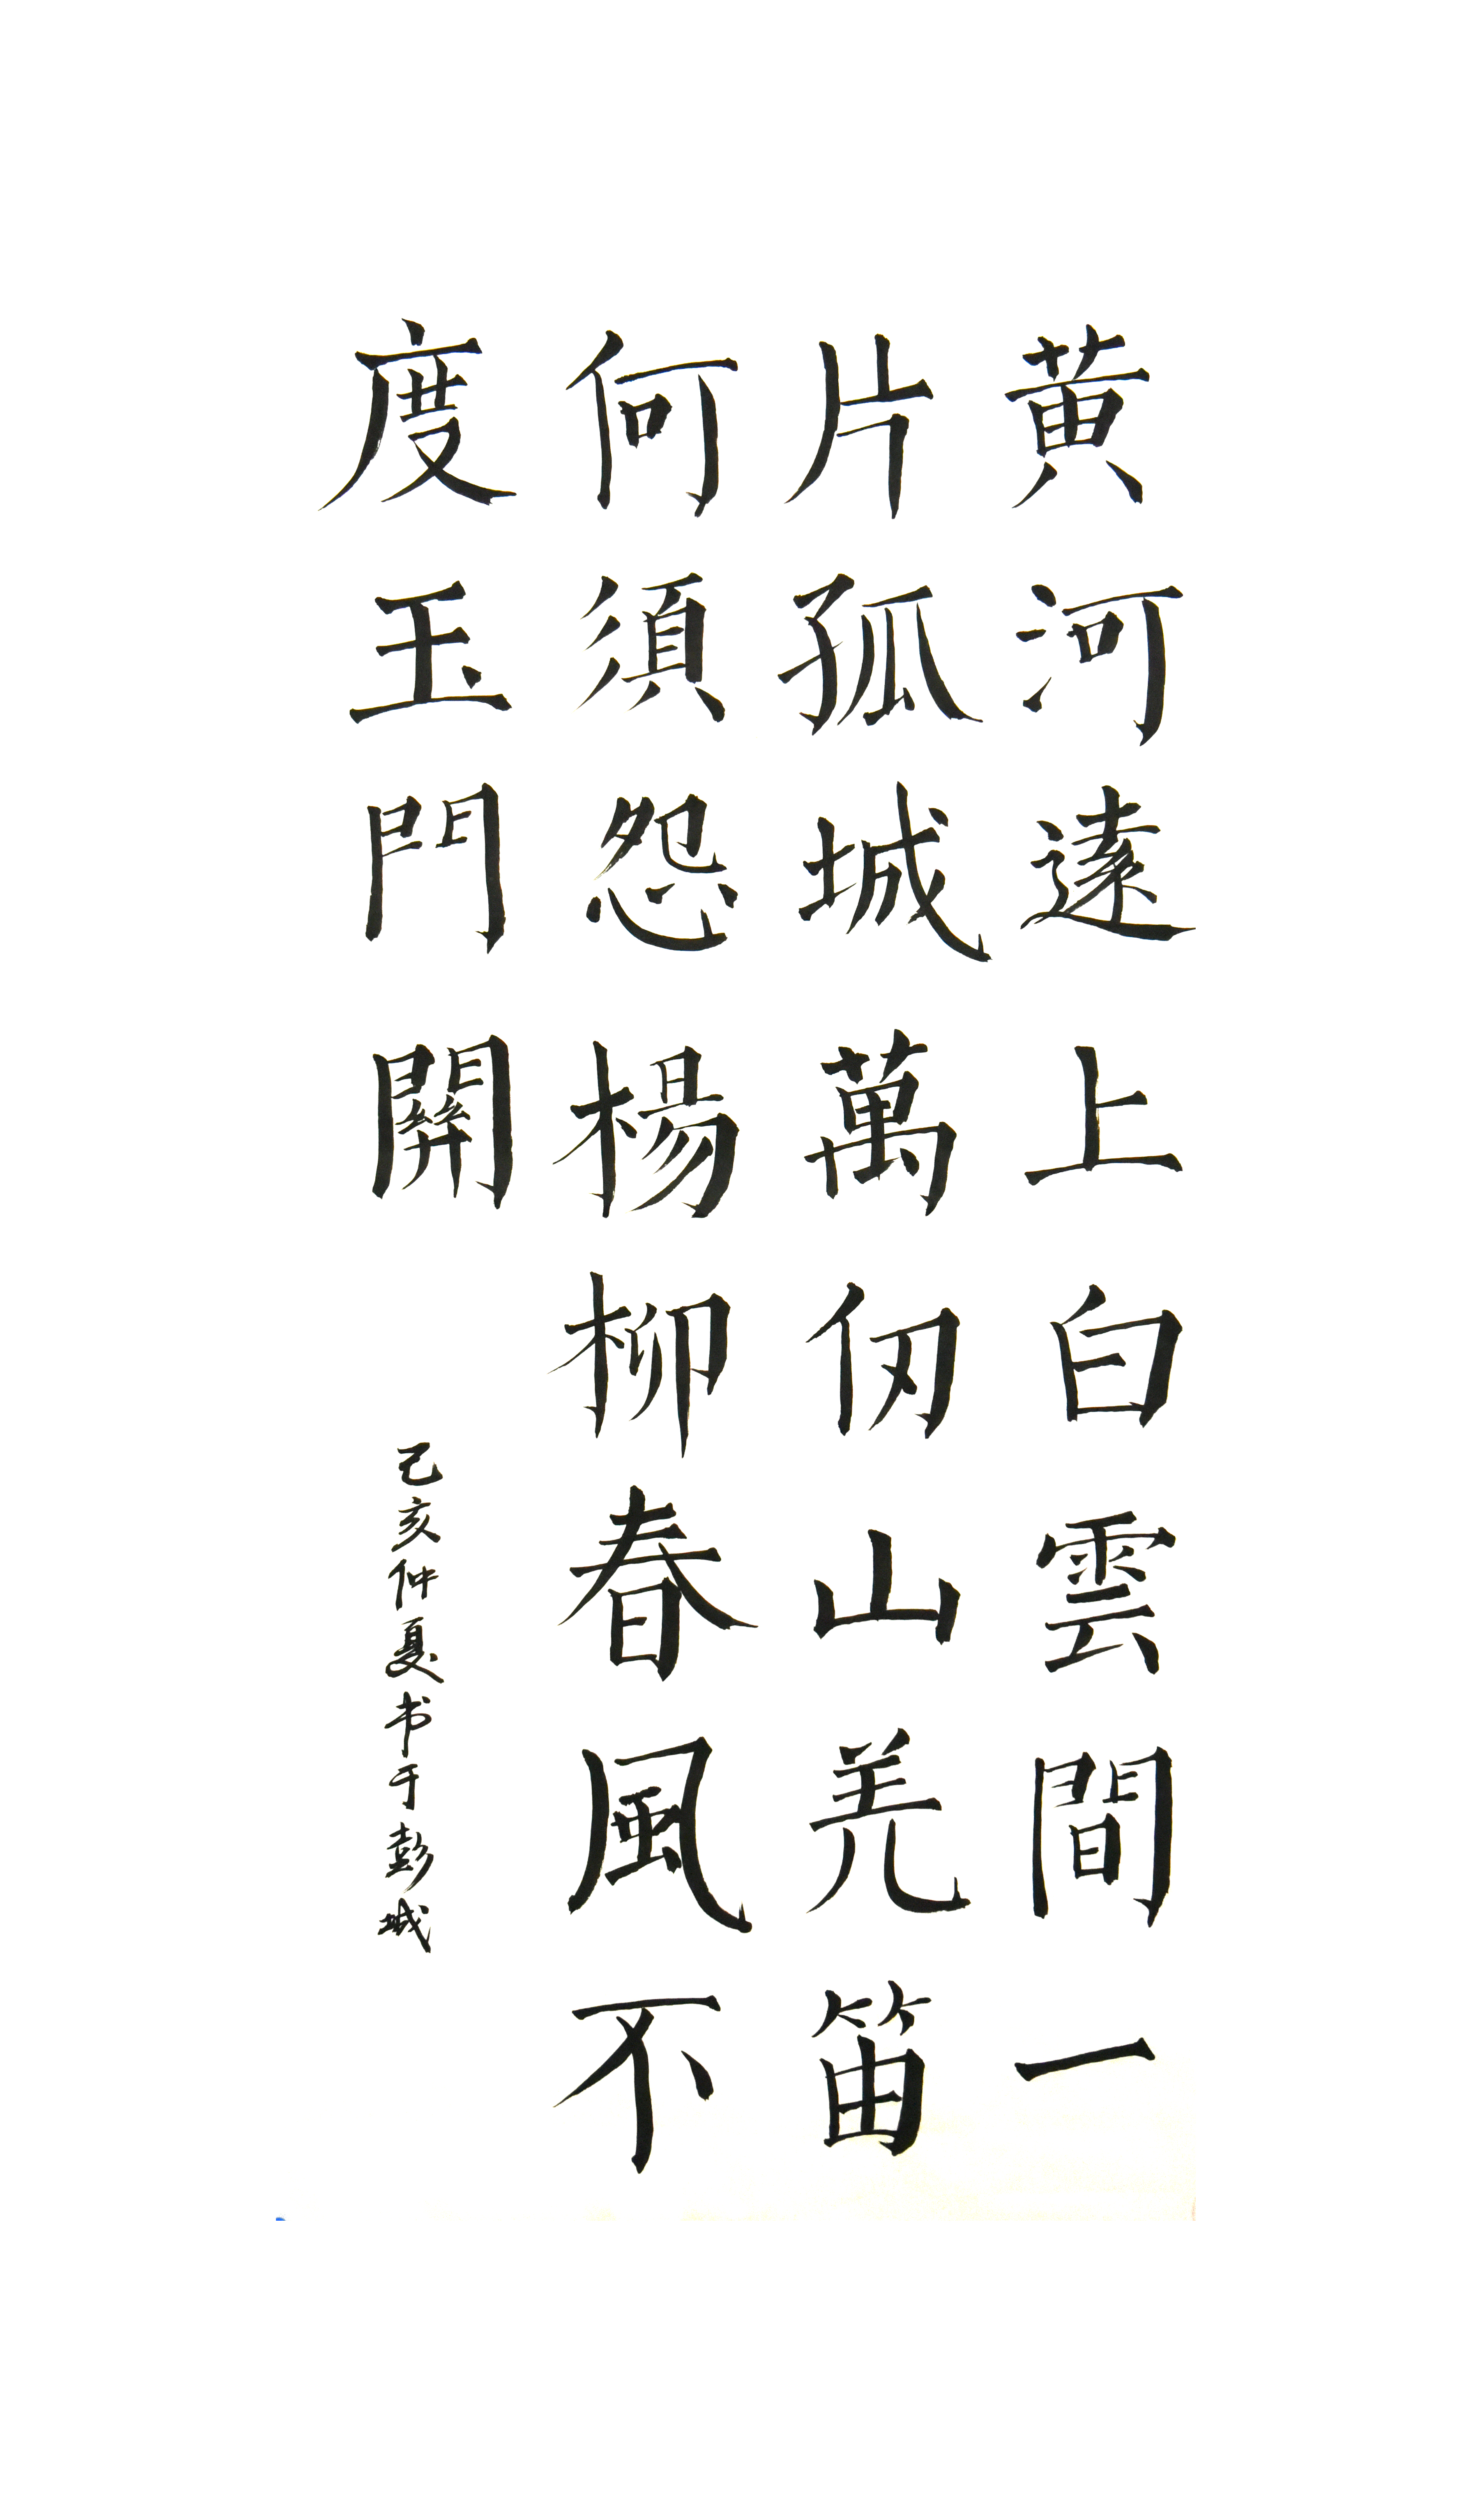 黄河遠上白雲間一
片孤城萬仞山羌笛
何須怨楊柳春風不
度玉門關
己亥仲夏书于彭城